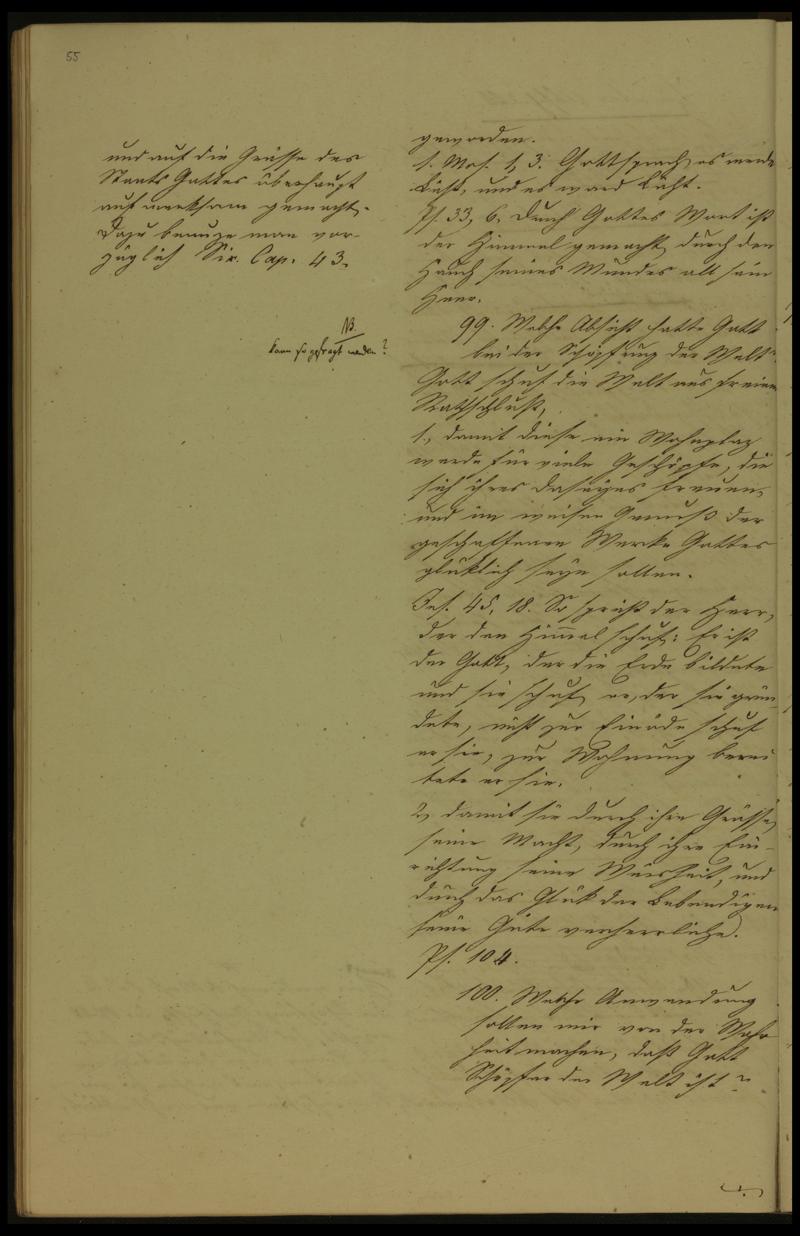 55
und auf die Grösse des
Staats Gottes überhaupt
aufmerksam gemacht.
Dazu benuze man vor-
züglich Sir. Cap. 43.
NB.
kann so gefragt werden?
geworden.
1. Mos. 1, 3. Gott sprach, es werde
Licht, und es ward Licht.
Ps. 33, 6. Durch Gottes Wort ist
der Himmel gemacht, durch den
Hauch seines Mundes all sein
Heer.
99. Welche Absicht hatte Gott
bei der Schöpfung der Welt?
Gott schuf die Welt aus freiem
Rathschluß,
1., damit diese ein Wohnplaz
werde für viele Geschöpfe, die
sich ihres Daseyns freuen,
und im weisen Genuß der
geschaffenen Werke Gottes
glüklich seyn sollen.
Jes. 45, 18. So spricht der Herr,
der den Himmel schuf: Er ist
der Gott, der die Erde bildete
und sie schuf, er, der sie grün-
dete, nicht zur Einöde schuf
er sie, zur Wohnung berei
tete er sie.
2, damit sie durch ihre Grösse
seine Macht, durch ihre Ein-
richtung seine Weisheit, und
durch das Glük der Lebendigen
seine Güte verherrliche.
Ps. 104.
100. Welche Anwendung
sollen wir von der Wahr
heit machen, daß Gott
Schöpfer der Welt ist?